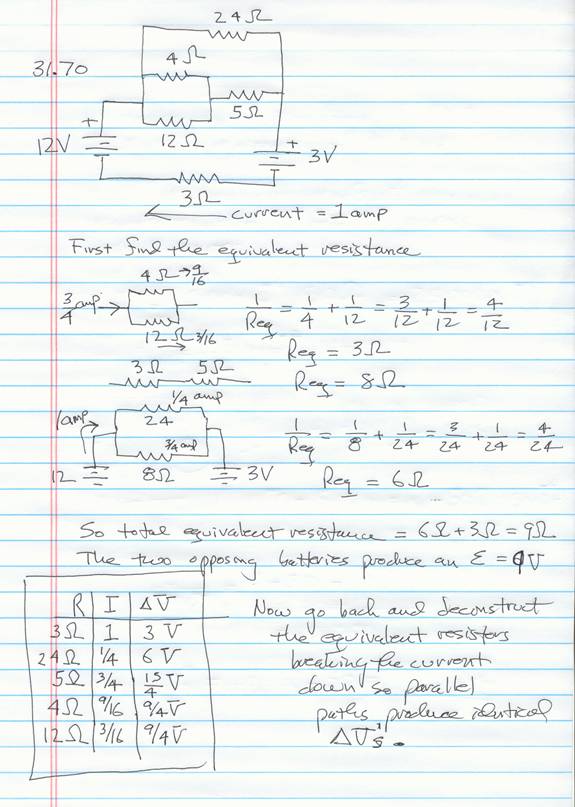 24Ω
4Ω
31.70
5Ω
+
12V
12Ω
+
3V
3Ω
← current = 1 amp
First find the equivalent resistance
4Ω → 9/16
3/4 amp →
12Ω → 3/16
1/Req = 1/4 + 1/12 = 3/12 + 1/12 = 4/12
Req = 3Ω
3Ω 5Ω
Req = 8Ω
1/4 amp
1 amp
24
3/4 amp
12 8Ω 3V
1/Req = 1/8 + 1/24 = 3/24 + 1/24 = 4/24
Req = 6Ω
So total equivalent resistance = 6Ω + 3Ω = 9Ω
The two opposing batteries produce an ℰ = 9V
R I ΔV
3Ω 1 3V
24Ω 1/4 6V
5Ω 3/4 15/4 V
4Ω 9/16 9/4 V
12Ω 3/16 9/4 V
Now go back and deconstruct
the equivalent resistors
breaking the current
down so parallel
paths produce identical
ΔV's.